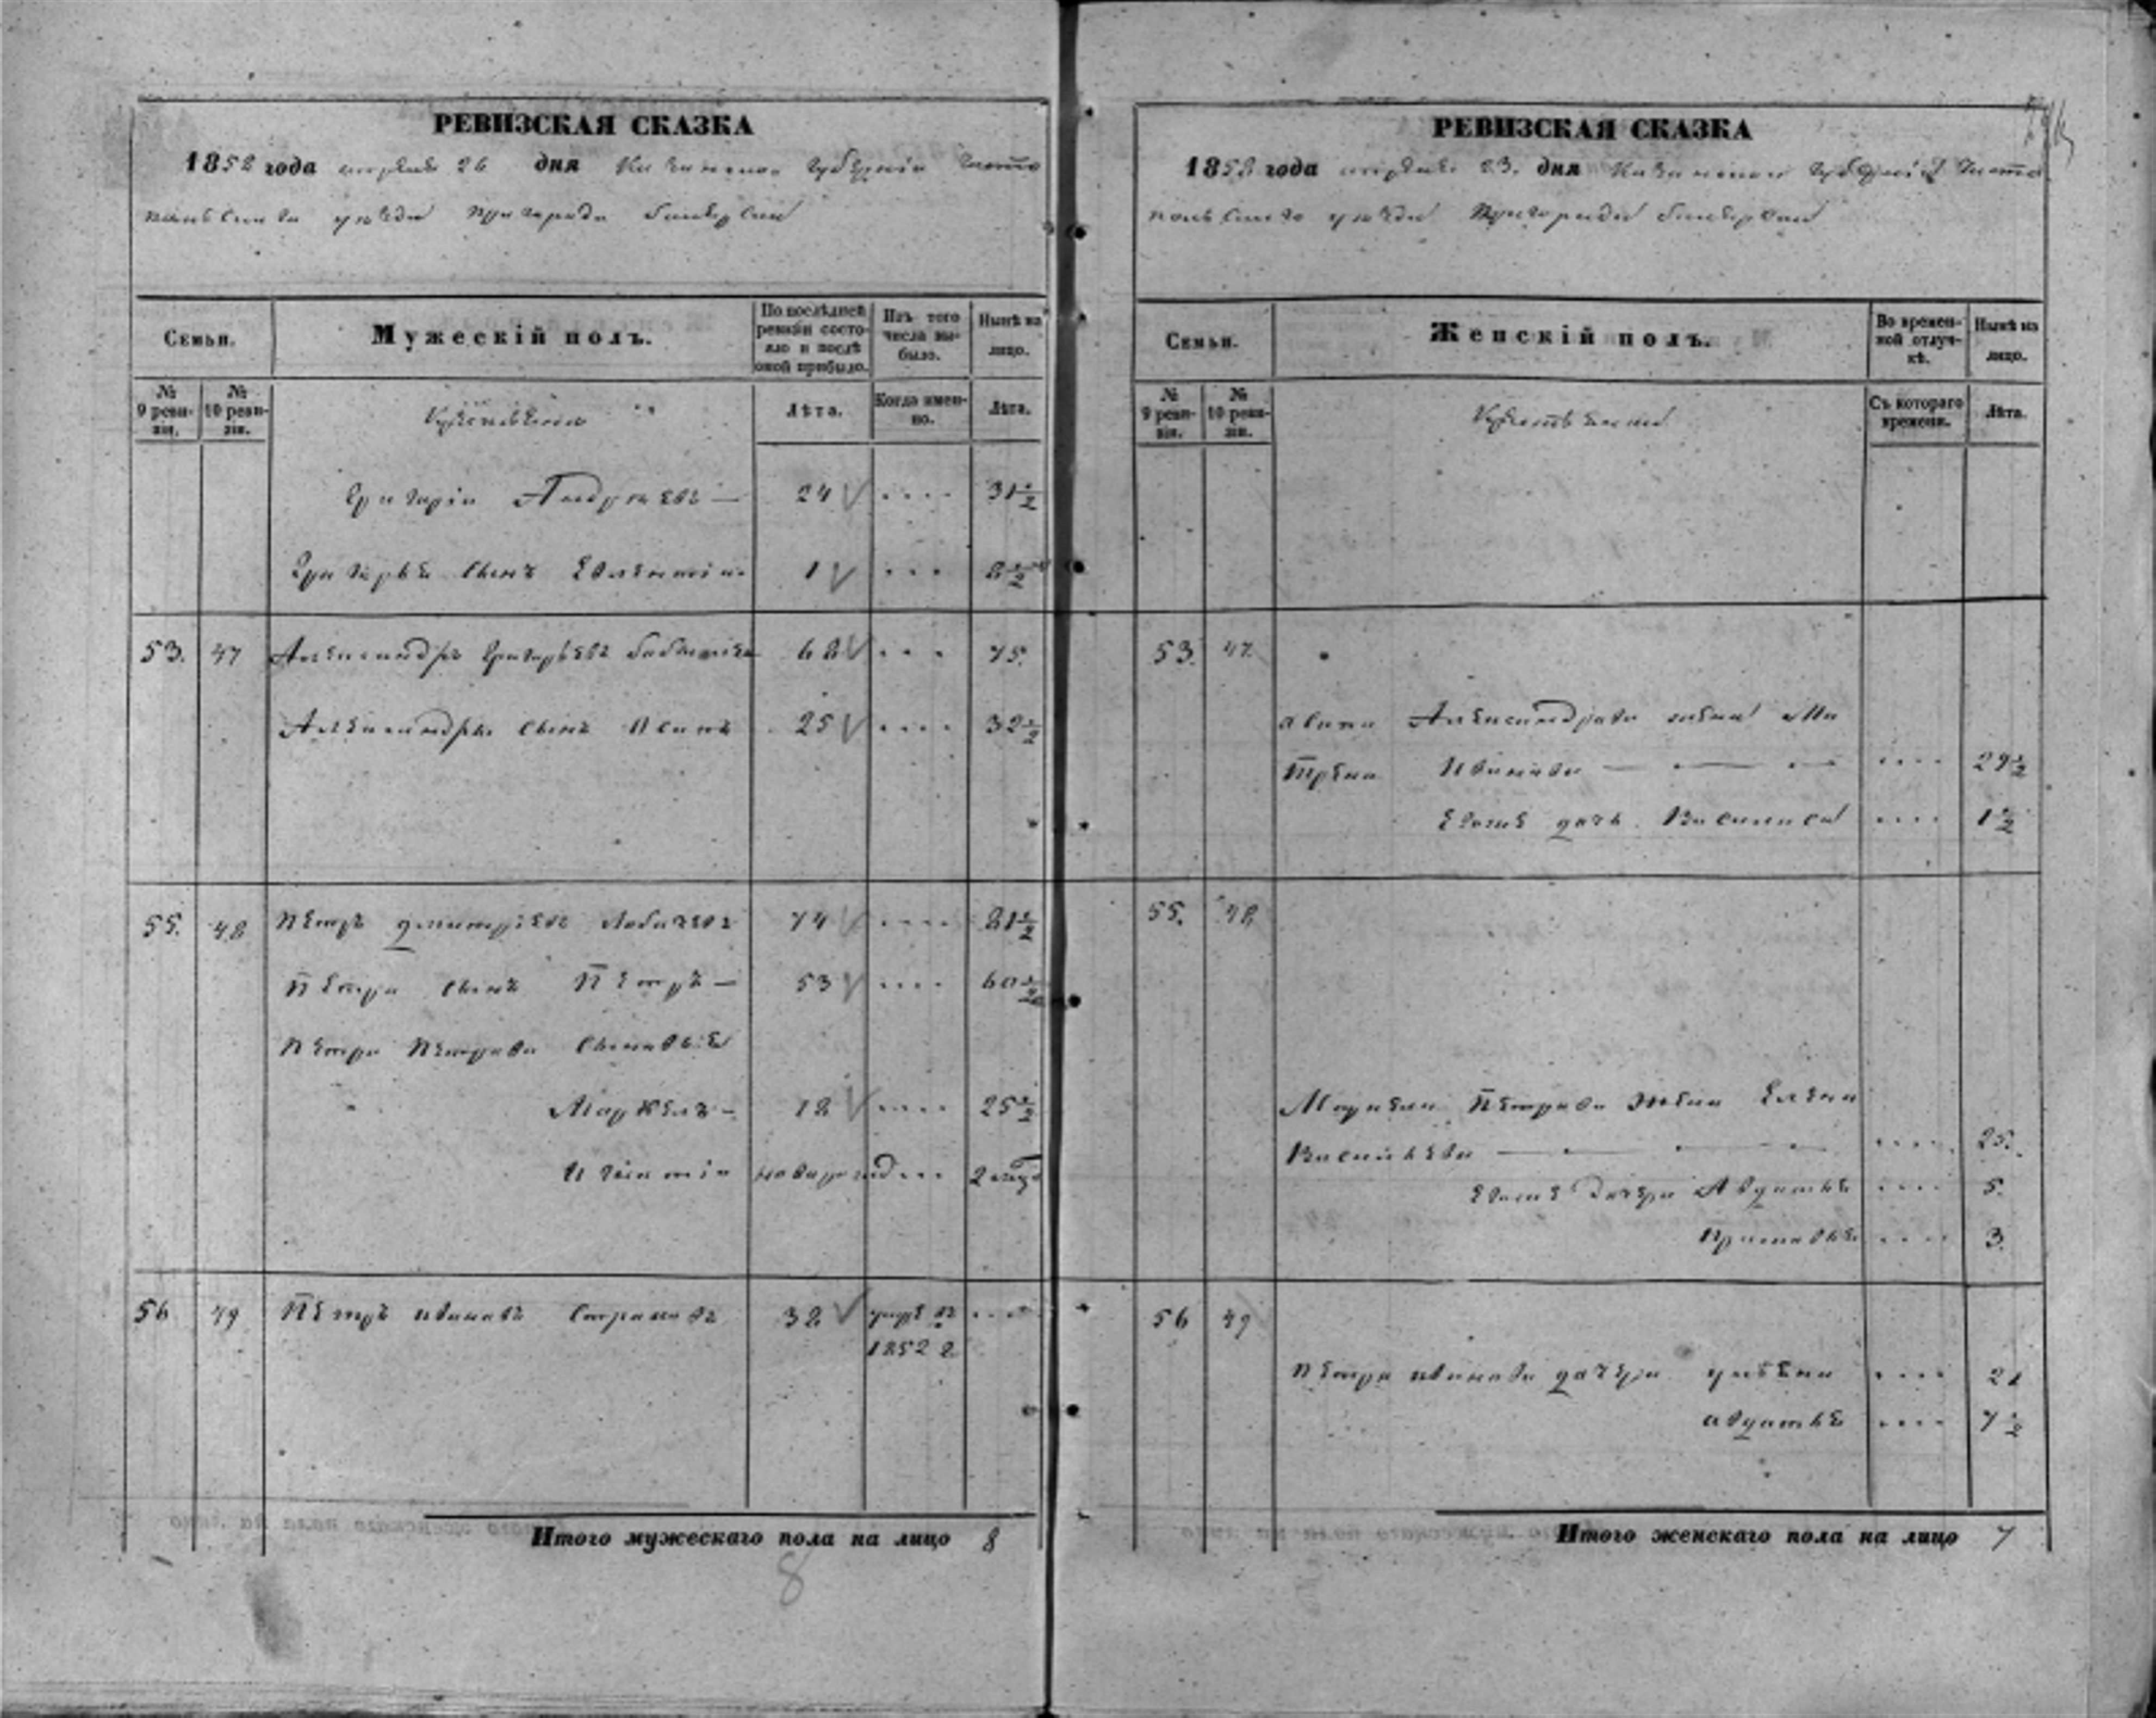 РЕВИЗСКАЯ СКАЗКА
1858 года апреля 26 дня Казанской губерніи Чисто
польскаго уезда пригорода Билярска
Семьи.
Мужескій полъ.
По послѣдней ревизіи состояло и послѣ оной прибыло.
Изъ того числа выбыло.
Нынѣ на лицо.
№ 9 ревизіи.
№ 10 ревизіи.
Лѣта.
Когда именно.
Лѣта.
Григорій Андреевъ — 24 31 1/2
Григорья сынъ 1 8 1/2
53. 47 Александръ Григорьевъ 68 75.
Александра сынъ Осипъ 25 32 1/2
55. 48 Петръ Дмитріевъ 74 81 1/2
Петра сынъ Петръ — 53 60 1/2
Петра Петрова сыновья
Маркелъ — 18 25 1/2
новорожд 2
56 49 Петръ Ивановъ 38 умре въ
1852 г
Итого мужескаго пола на лицо 8
8
РЕВИЗСКАЯ СКАЗКА
1858 года апреля 23. дня Казанской губерніи Чисто
польскаго уезда Пригорода Билярска
Семьи.
Женскій полъ.
Во временной отлучкѣ.
Нынѣ на лицо.
№ 9 ревизіи.
№ 10 ревизіи.
Съ котораго времени.
Лѣта.
53. 47.
Осипа Александрова жена Ма
трена Иванова — 29 1/2
Евоне дочь Василиса 1 1/2
55. 48
Маркела Петрова жена Елена
Васильева — 25.
Евоне дочери Авдотья 5.
Прасковья 3.
56 49
Петра Иванова дочери 21
Авдотья 7 1/2
Итого женскаго пола на лицо 7